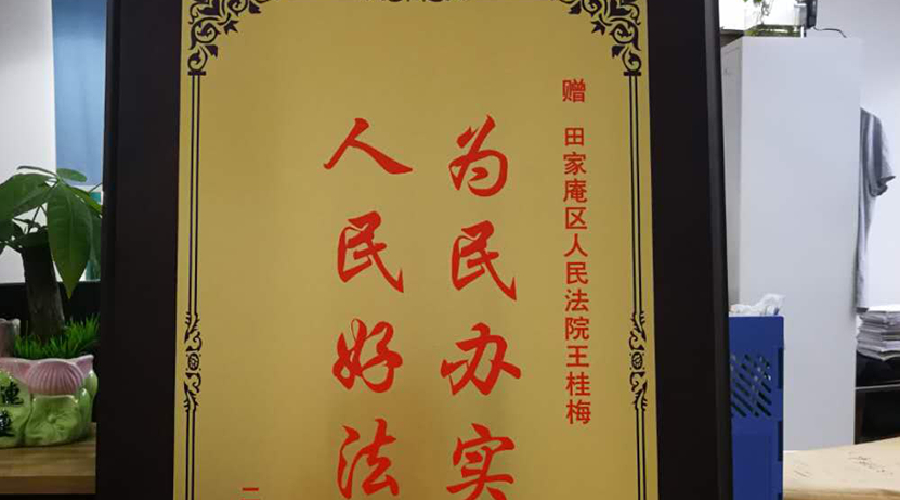 赠 田家庵区人民法院王桂梅
为民办实
人民好法